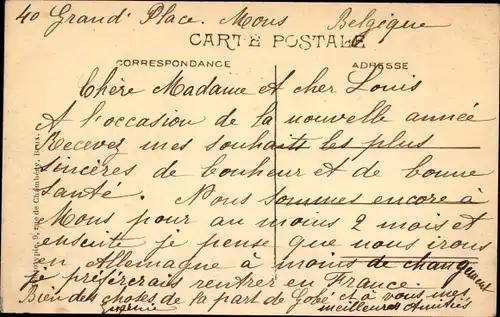 40 Grand' Place. Mons Belgique
CARTE POSTALE
CORRESPONDANCE
ADRESSE
Chère Madame et cher Louis
A l'occasion de la nouvelle année
Recevez mes souhaits les plus
sincères de bonheur et de bonne
santé. Nous sommes encore à
Mons pour au moins 2 mois et
ensuite je pense que nous irons
en Allemagne à moins de changement
je préférerais rentrer en France.
Bien des choses de la part de Gobé et à vous mes
meilleures Amitiés
9, rue de Chambéry, Bdux.